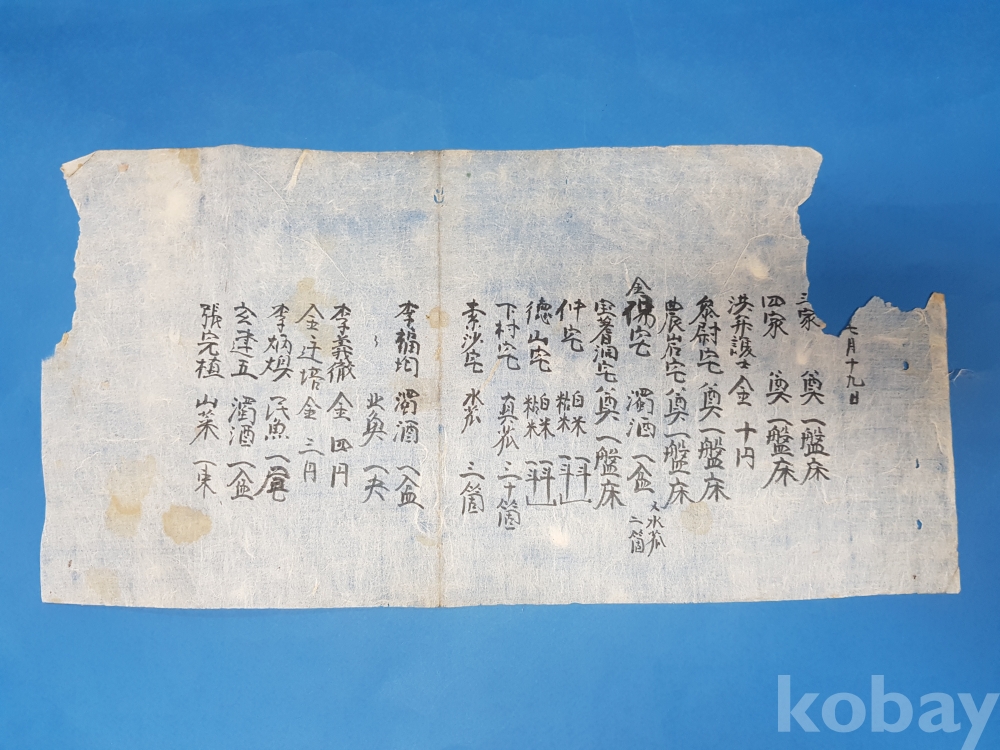 七月十九日
三家 奠 一盤床
四家 奠 一盤床
洪弁護士 金 十円
參尉宅 奠 一盤床
農岩宅 奠 一盤床
金 宅 濁酒 一盆 又水苽 二箇
洞宅 奠 一盤床
仲宅 白米 一斗 糊米 一斗
德山宅 白米 一斗 糊米 一斗
下村宅 真苽 三十箇
素沙宅 水苽 三箇
李 均 濁酒 一盆
〃 北魚 一夬
李義徹 金 四円
金 培 金 三円
李炳煥 民魚 一尾
玄建五 濁酒 一盆
張完植 山菜 一束
kobay